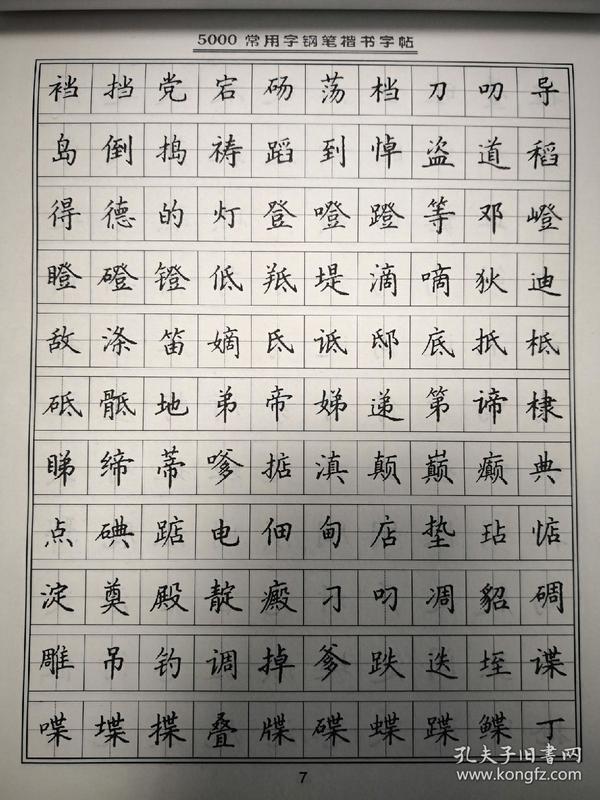 5000 常用字钢笔楷书字帖
裆 挡 党 宕 砀 荡 档 刀 叨 导
岛 倒 捣 祷 蹈 到 悼 盗 道 稻
得 德 的 灯 登 噔 蹬 等 邓 嶝
瞪 磴 镫 低 羝 堤 滴 嘀 狄 迪
敌 涤 笛 嫡 氐 诋 邸 底 抵 柢
砥 骶 地 弟 帝 娣 递 第 谛 棣
睇 缔 蒂 嗲 掂 滇 颠 巅 癫 典
点 碘 踮 电 佃 甸 店 垫 玷 惦
淀 奠 殿 靛 癜 刁 叼 凋 貂 碉
雕 吊 钓 调 掉 爹 跌 迭 垤 谍
喋 堞 揲 叠 牒 碟 蝶 蹀 鲽 丁
7
孔夫子旧书网
www.kongfz.com